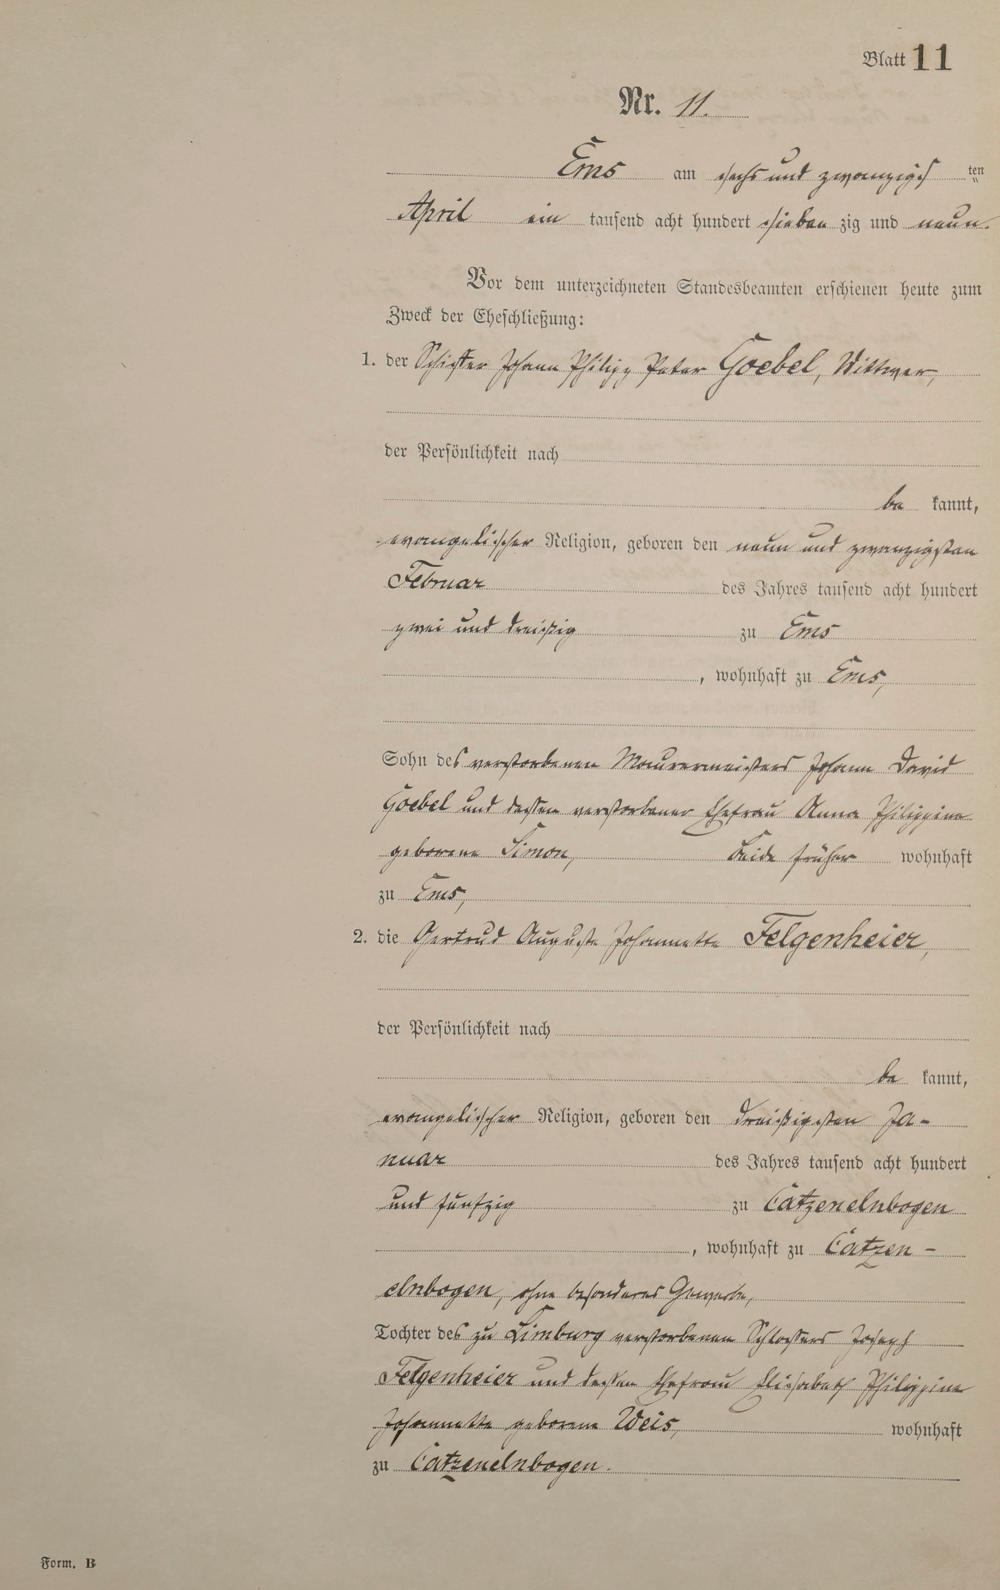 Blatt 11
Nr. 11.
Ems am sechs und zwanzigs ten
April ein tausend acht hundert sieben zig und neun.
Vor dem unterzeichneten Standesbeamten erschienen heute zum
Zweck der Eheschließung:
1. der Johann Philipp Peter Goebel, Wittwer,
der Persönlichkeit nach
be kannt,
evangelischer Religion, geboren den neun und zwanzigsten
Februar des Jahres tausend acht hundert
zwei und dreißig zu Ems
, wohnhaft zu Ems,
Sohn des verstorbenen Maurermeisters Johann David
Goebel und dessen verstorbener Ehefrau Anna Philippine
geborene Simon, beide früher wohnhaft
zu Ems,
2. die Gertrud Auguste Johannette Felgenheier,
der Persönlichkeit nach
be kannt,
evangelischer Religion, geboren den dreißigsten Ja-
nuar des Jahres tausend acht hundert
und fünfzig zu Catzenelnbogen
, wohnhaft zu Catzen-
elnbogen, ohne besonderes Gewerbe,
Tochter des zu Limburg verstorbenen Schlossers Joseph
Felgenheier und dessen Ehefrau Elisabeth Philippine
Johannette geborene Weis, wohnhaft
zu Catzenelnbogen.
Form. B